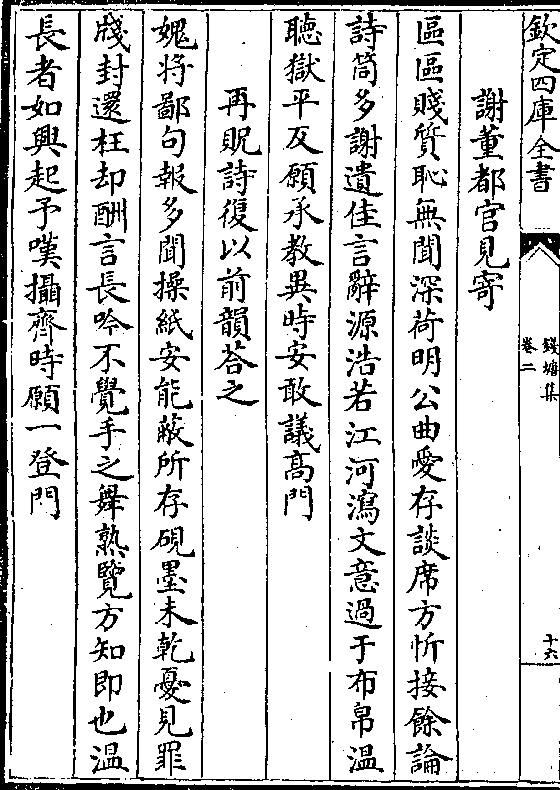 欽定四庫全書
錢塘集
卷二
十六
謝董都官見寄
區區賤質恥無聞深荷明公曲愛存談席方忻接餘論
詩筒多謝遺佳言辭源浩若江河瀉文意過于布帛溫
聽獄平反願承教異時安敢議高門
再貺詩復以前韻荅之
媿將鄙句報多聞操紙安能蔽所存硯墨未乾憂見罪
牋封還枉却酬言長吟不覺手之舞熟覽方知即也溫
長者如興起予嘆攝齊時願一登門